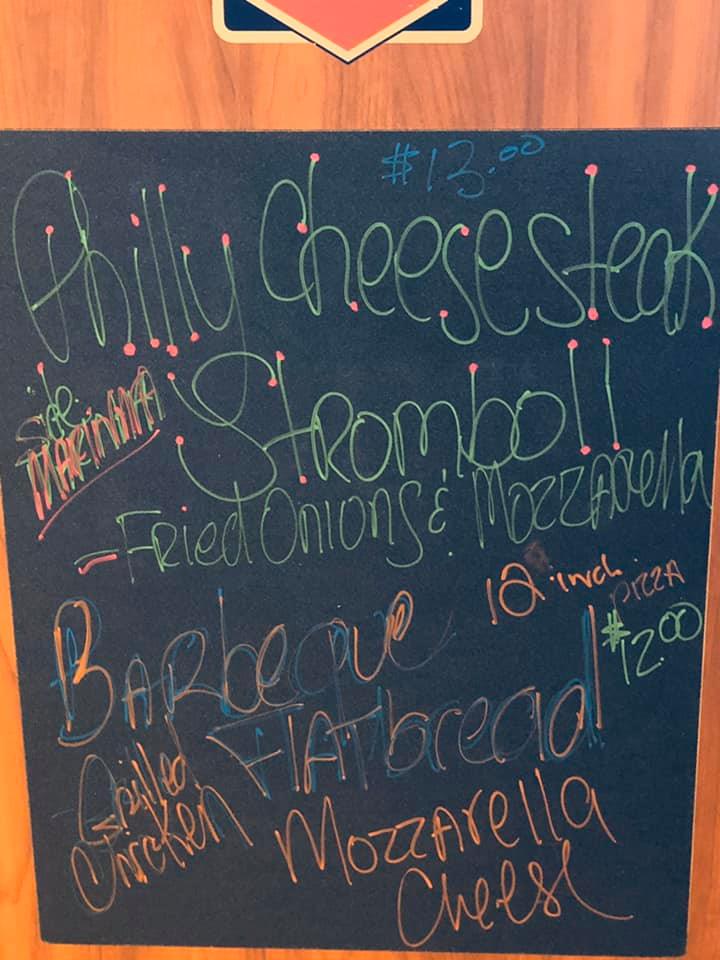 $13.00
Philly Cheesesteak
Stromboli
side
MARINARA
-Fried Onions & Mozzarella
12 inch PIZZA
$12.00
Barbeque
Flatbread
Grilled
Chicken
Mozzarella
Cheese